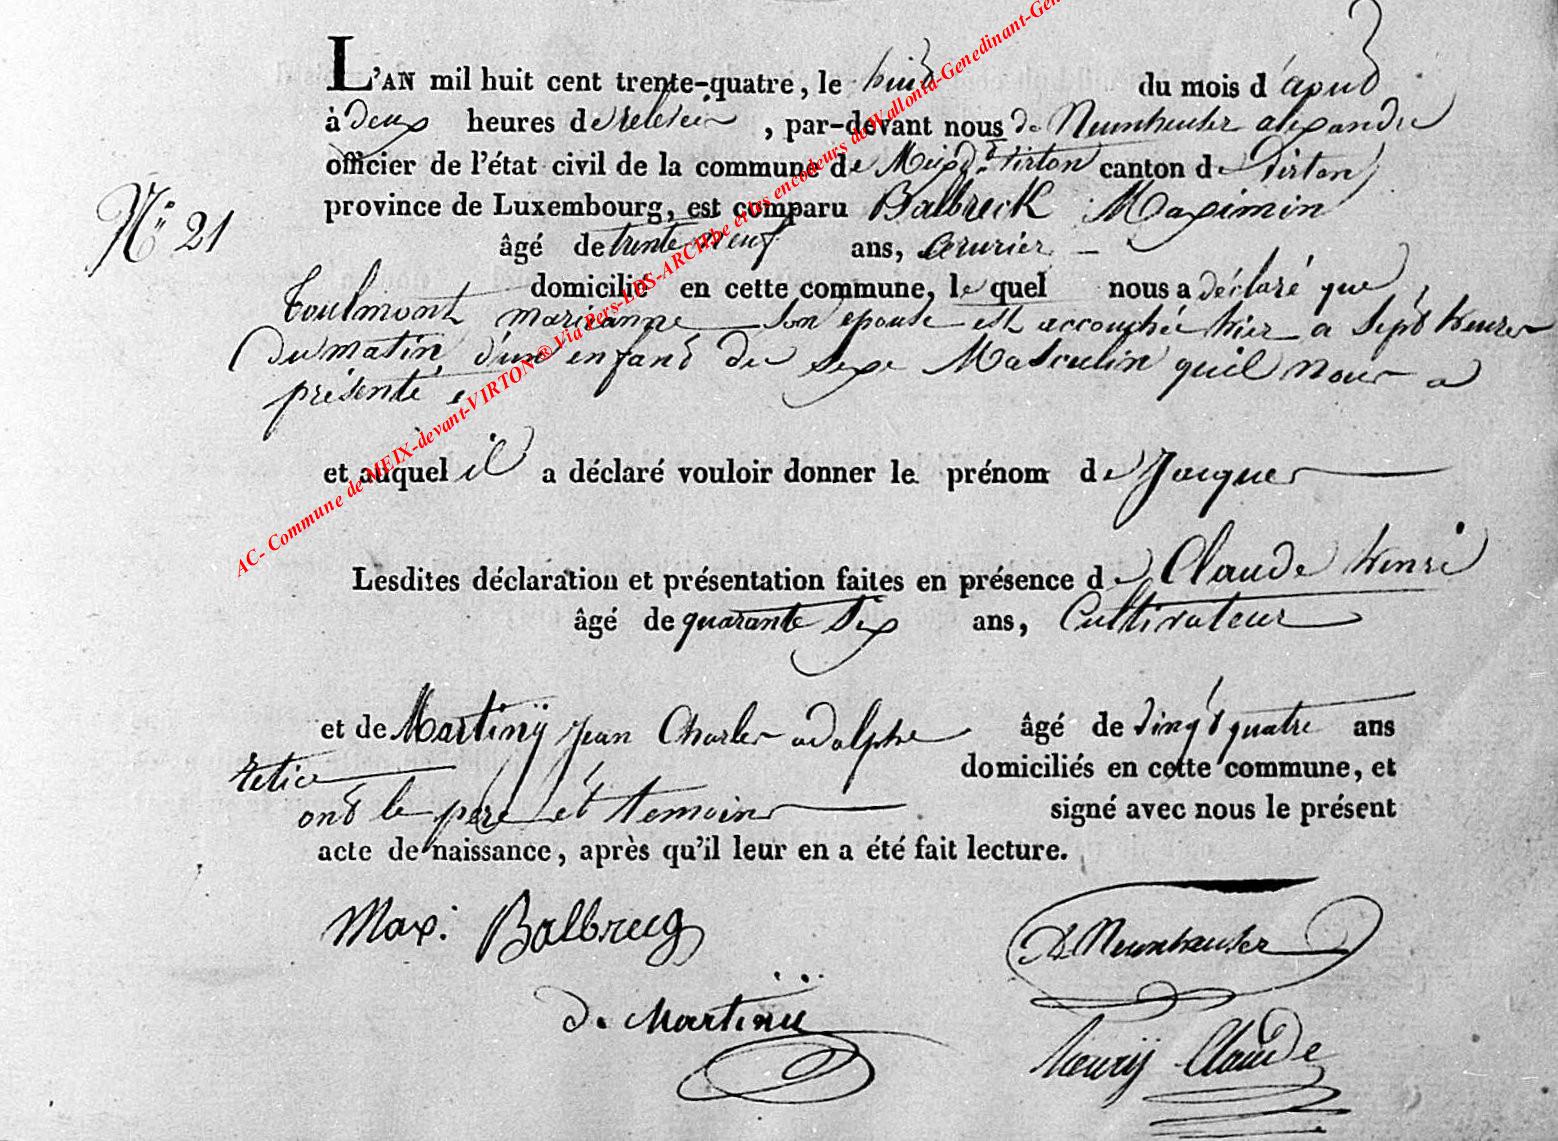 L'AN mil huit cent trente-quatre, le huit du mois d'avril
à deux heures de relevée, par-devant nous de Neunheuser alexandre
officier de l'état civil de la commune de Meix dt Virton canton de Virton
province de Luxembourg, est comparu Balbreck Maximin
N° 21
âgé de trente neuf ans, serurier
domicilié en cette commune, lequel nous a déclaré que
toulmont marieanne son epouse est accouchée hier a sept heures
du matin d'un enfant de sexe Masculin quil nous a
présenté
et auquel il a déclaré vouloir donner le prénom de Jacques
Lesdites déclaration et présentation faites en présence de Claude henri
âgé de quarante six ans, Cultivateur
et de Martinÿ jean Charles adolphe âgé de vingt quatre ans
domiciliés en cette commune, et
ont le pére et temoins signé avec nous le présent
acte de naissance, après qu'il leur en a été fait lecture.
Max. Balbrecq
Neunheuser
d. Martinÿ
Claude
AC- Commune de MEIX-devant-VIRTON ® Via Pers-LDS-ARCH.be et les encodeurs de Wallonia-Genedinant-Gen